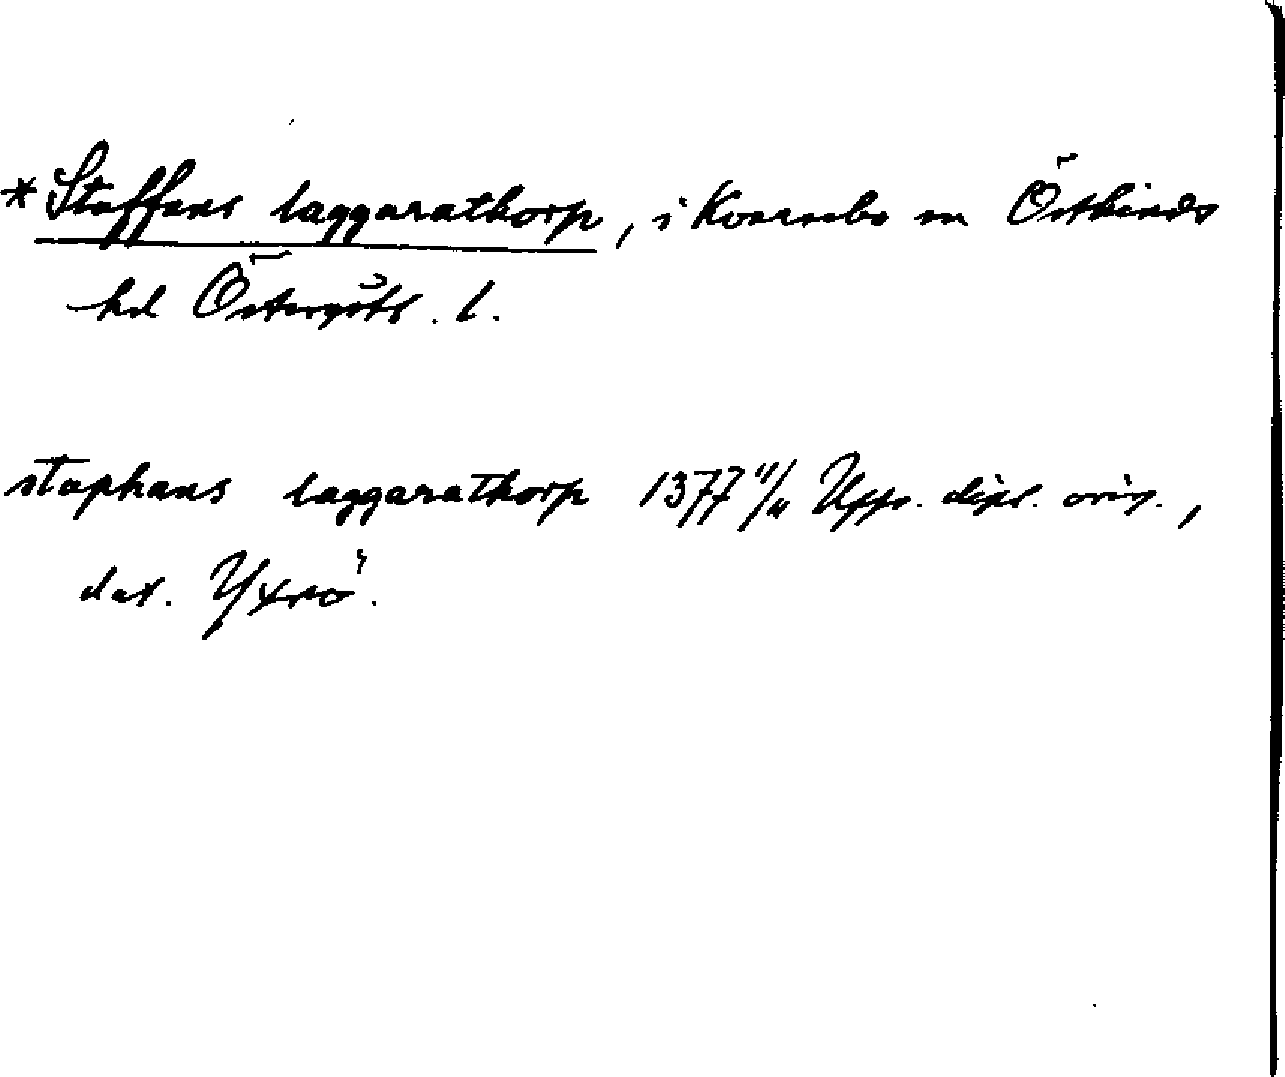 *Staffans laggarathorp, i Kvarsebo sn Östkinds
hd Östergötl. l.
staphans laggarathorp 1377 11/11 Upps. dipl. orig.,
dat. Yxnö.